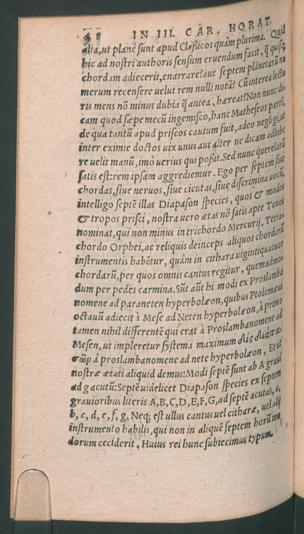 48 IN III. CAR. HORAT.
alia, ut plane sunt apud Classicos quàm plurima. Quid
hic ad nostri authoris sensum eruendum facit, ꝗ̃ quisq̃
chordam adiecerit, enarrare? aut septem planetarũ nu
merum recensere uelut rem nulli notã? Cũ interea lecto
ris mens nõ minus dubia ꝗ̃ antea, hæreat? Non nunc dis
cam quod sæpe mecũ ingemisco, hanc Matheseos partē,
de qua tantũ apud priscos cautum fuit, adeo negligi, ut
inter eximie doctos uix unus aut alter ne dicam adhibe
re uelit manũ, imò uerius qui possit. Sed nunc querelarũ
satis est: rem ipsam aggrediemur. Ego per septem siue
chordas, siue neruos, siue cicutas, siue discrimina uocũ,
intelligo septē illas Diapason species, quos & modos
& tropos prisci, nostra uero ætas nõ satis apte Tonos
nominat, qui non minus in trichordo Mercurij, Tetra
chordo Orphei, ac reliquis deinceps aliquot chordarũ
instrumentis habētur, quàm in cithara uigintiquatuor
chordarũ, per quos omnis cantus regitur, quemadmo
dum per pedes carmina. Sūt aũt hi modi ex Proslamba
nomene ad paraneten hyperbolæon, quibus Ptolemæus
octauũ adiecit à Mese ad Neten hyperbolæon, à primo
tamen nihil differentē qui erat à Proslambanomene ad
Mesen, ut impleretur systema maximum Δὶς διαπα
σῶν à proslambanomene ad nete hyperbolæon. Et ut
nostræ ætati aliquid demus: Modi septē sunt ab A graui
ad g acutũ: Septē uidelicet Diapason species ex septem
grauioribus literis A, B, C, D, E, F, G, ad septē acutas, a,
b, c, d, e, f, g. Neq; est ullus cantus uel citharæ, uel alij
instrumento habilis, qui non in aliquē septem horũ mo
dorum ceciderit. Huius rei hunc subiecimus typum.